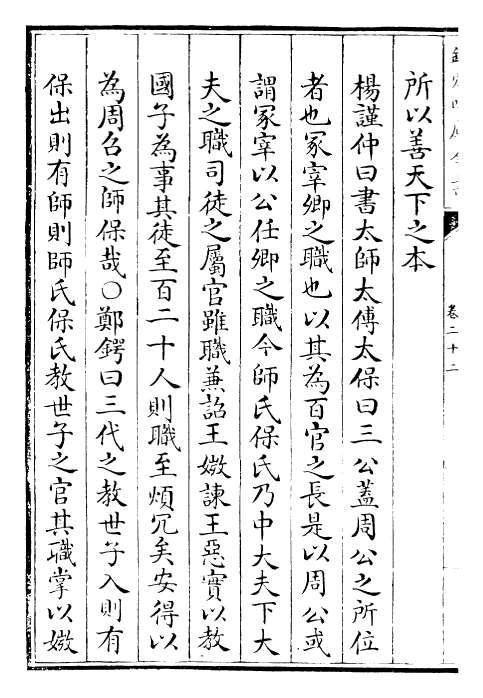 欽定四庫全書
卷二十二
所以善天下之本
楊謹仲曰書太師太傅太保曰三公蓋周公之所位
者也冢宰卿之職也以其為百官之長是以周公或
謂冢宰以公任卿之職今師氏保氏乃中大夫下大
夫之職司徒之屬官雖職兼詔王媺諫王惡實以教
國子為事其徒至百二十人則職至煩冗矣安得以
為周召之師保哉○鄭鍔曰三代之教世子入則有
保出則有師則師氏保氏教世子之官其職掌以媺